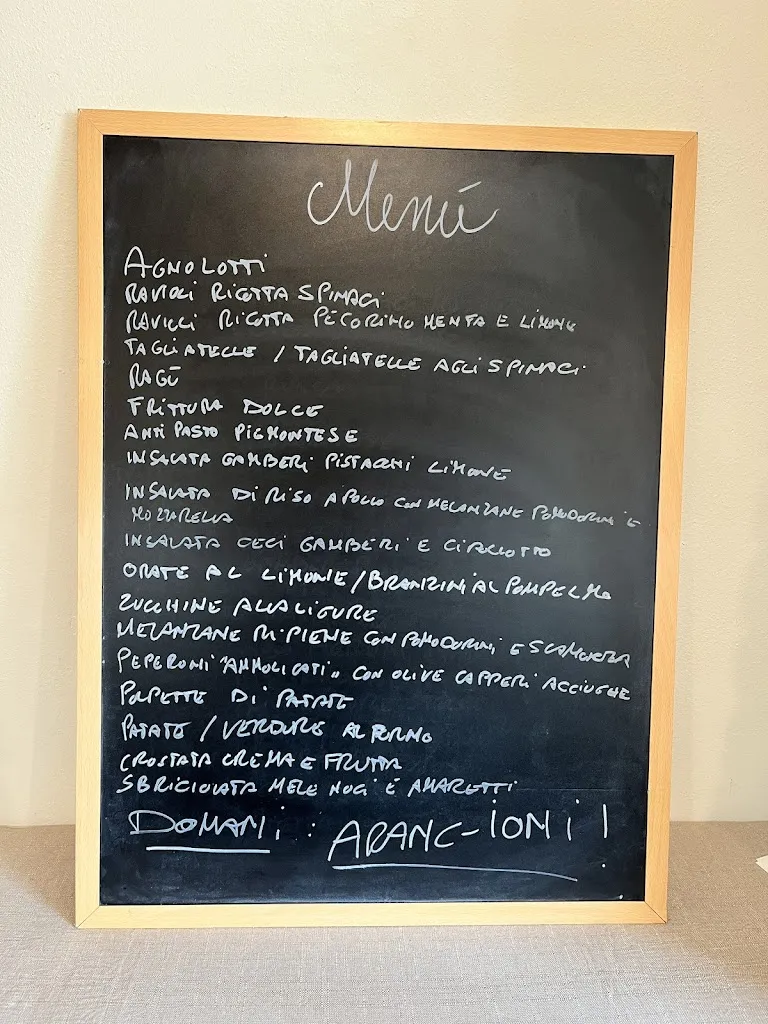 Menú
AGNOLOTTI
RAVIOLI RICOTTA SPINACI
RAVIOLI RICOTTA PECORINO MENTA E LIMONE
TAGLIATELLE / TAGLIATELLE AGLI SPINACI
RAGÚ
FRITTURA DOLCE
ANTIPASTO PIEMONTESE
INSALATA GAMBERI PISTACCHI LIMONE
INSALATA DI RISO A POLLO CON MELANZANE POMODORINI E
MOZZARELLA
INSALATA CECI GAMBERI E CIPOLLOTTO
ORATE AL LIMONE / BRANZINI AL POMPELMO
ZUCCHINE ALLA LIGURE
MELANZANE RIPIENE CON POMODORINI E SCAMORZA
PEPERONI "AMMOLICATI" CON OLIVE CAPPERI ACCIUGHE
POLPETTE DI PATATE
PATATE / VERDURE AL FORNO
CROSTATA CREMA E FRUTTA
SBRICIOLATA MELE NOCI E AMARETTI
DOMANI : ARANC-IONI !